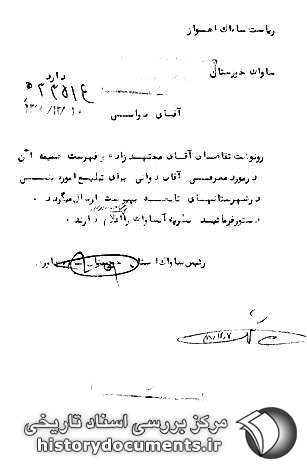 ریاست ساواک اهواز
ساواک خوزستان
دارد
آقای دوانسی
رونوشت تقاضای آقای مجتهدزاده و فهرست ضمیمه آن
درمورد معرفی آقای دوانی برای تبلیغ امور دینی
درشهرستانهای تابعه بپیوست ارسال میگردد ۰
دستور فرمائید نظریه آنساواک را اعلام دارند ۰
رئیس ساواک استان
مرکز بررسی اسناد تاریخی
historydocuments.ir